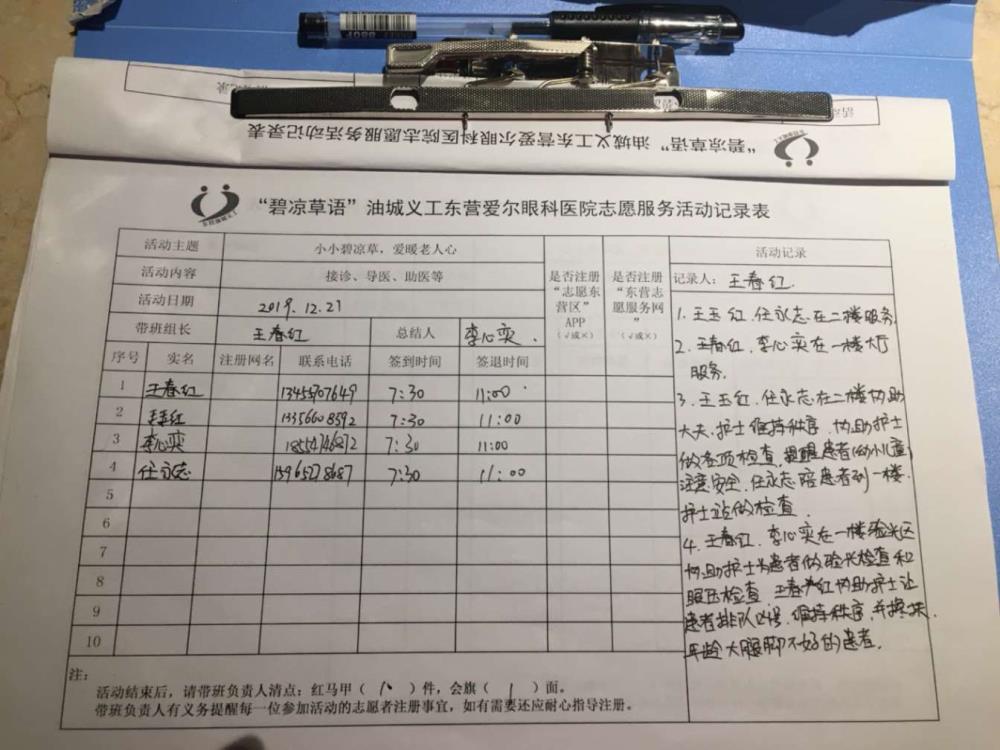 "碧凉草语"油城义工东营爱尔眼科医院志愿服务活动记录表
"碧凉草语"油城义工东营爱尔眼科医院志愿服务活动记录表
活动主题 小小碧凉草，爱暖老人心
活动内容 接诊、导医、助医等
活动日期 2019.12.21
带班组长 王春红 总结人 李心奕.
是否注册
"志愿东
营区"
APP
(√或×)
是否注册
"东营志
愿服务网
"
(√或×)
序号 实名 注册网名 联系电话 签到时间 签退时间
1 王春红 13455707649 7:30 11:00
2 王玉红 13356608592 7:30 11:00
3 李心奕 18554746872 7:30 11:00
4 任永志 15965278687 7:30 11:00
5
6
7
8
9
10
活动记录
记录人: 王春红.
1. 王玉红.任永志.在二楼服务.
2. 王春红.李心奕在一楼大厅
服务.
3. 王玉红.任永志在二楼协助
大夫.护士维持秩序.协助护士
做各项检查.提醒患者(幼小儿童)
注意安全.任永志陪患者到一楼.
护士站做检查.
4. 王春红.李心奕在一楼验光区
协助护士为患者做验光检查和
眼压检查.王春红协助护士让
患者排队 维持秩序.并搀扶
年龄大腿脚不好的患者.
注:
活动结束后，请带班负责人清点：红马甲（ ）件，会旗（ 1 ）面。
带班负责人有义务提醒每一位参加活动的志愿者注册事宜，如有需要还应耐心指导注册。